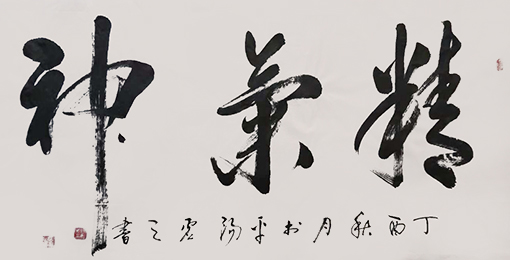 精氣神
丁酉秋月於平陽之書